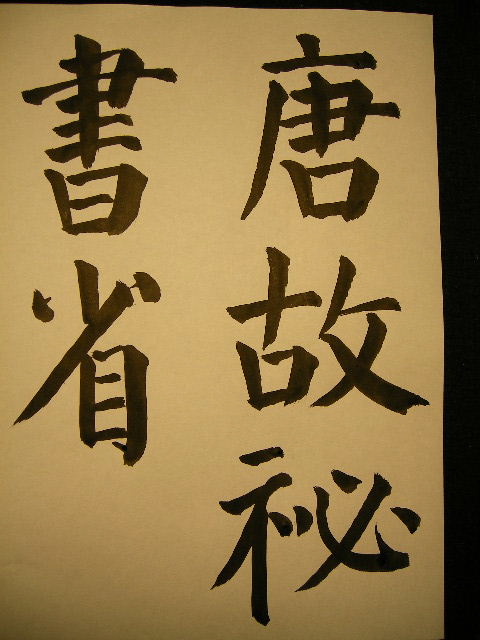 唐故祕
書省